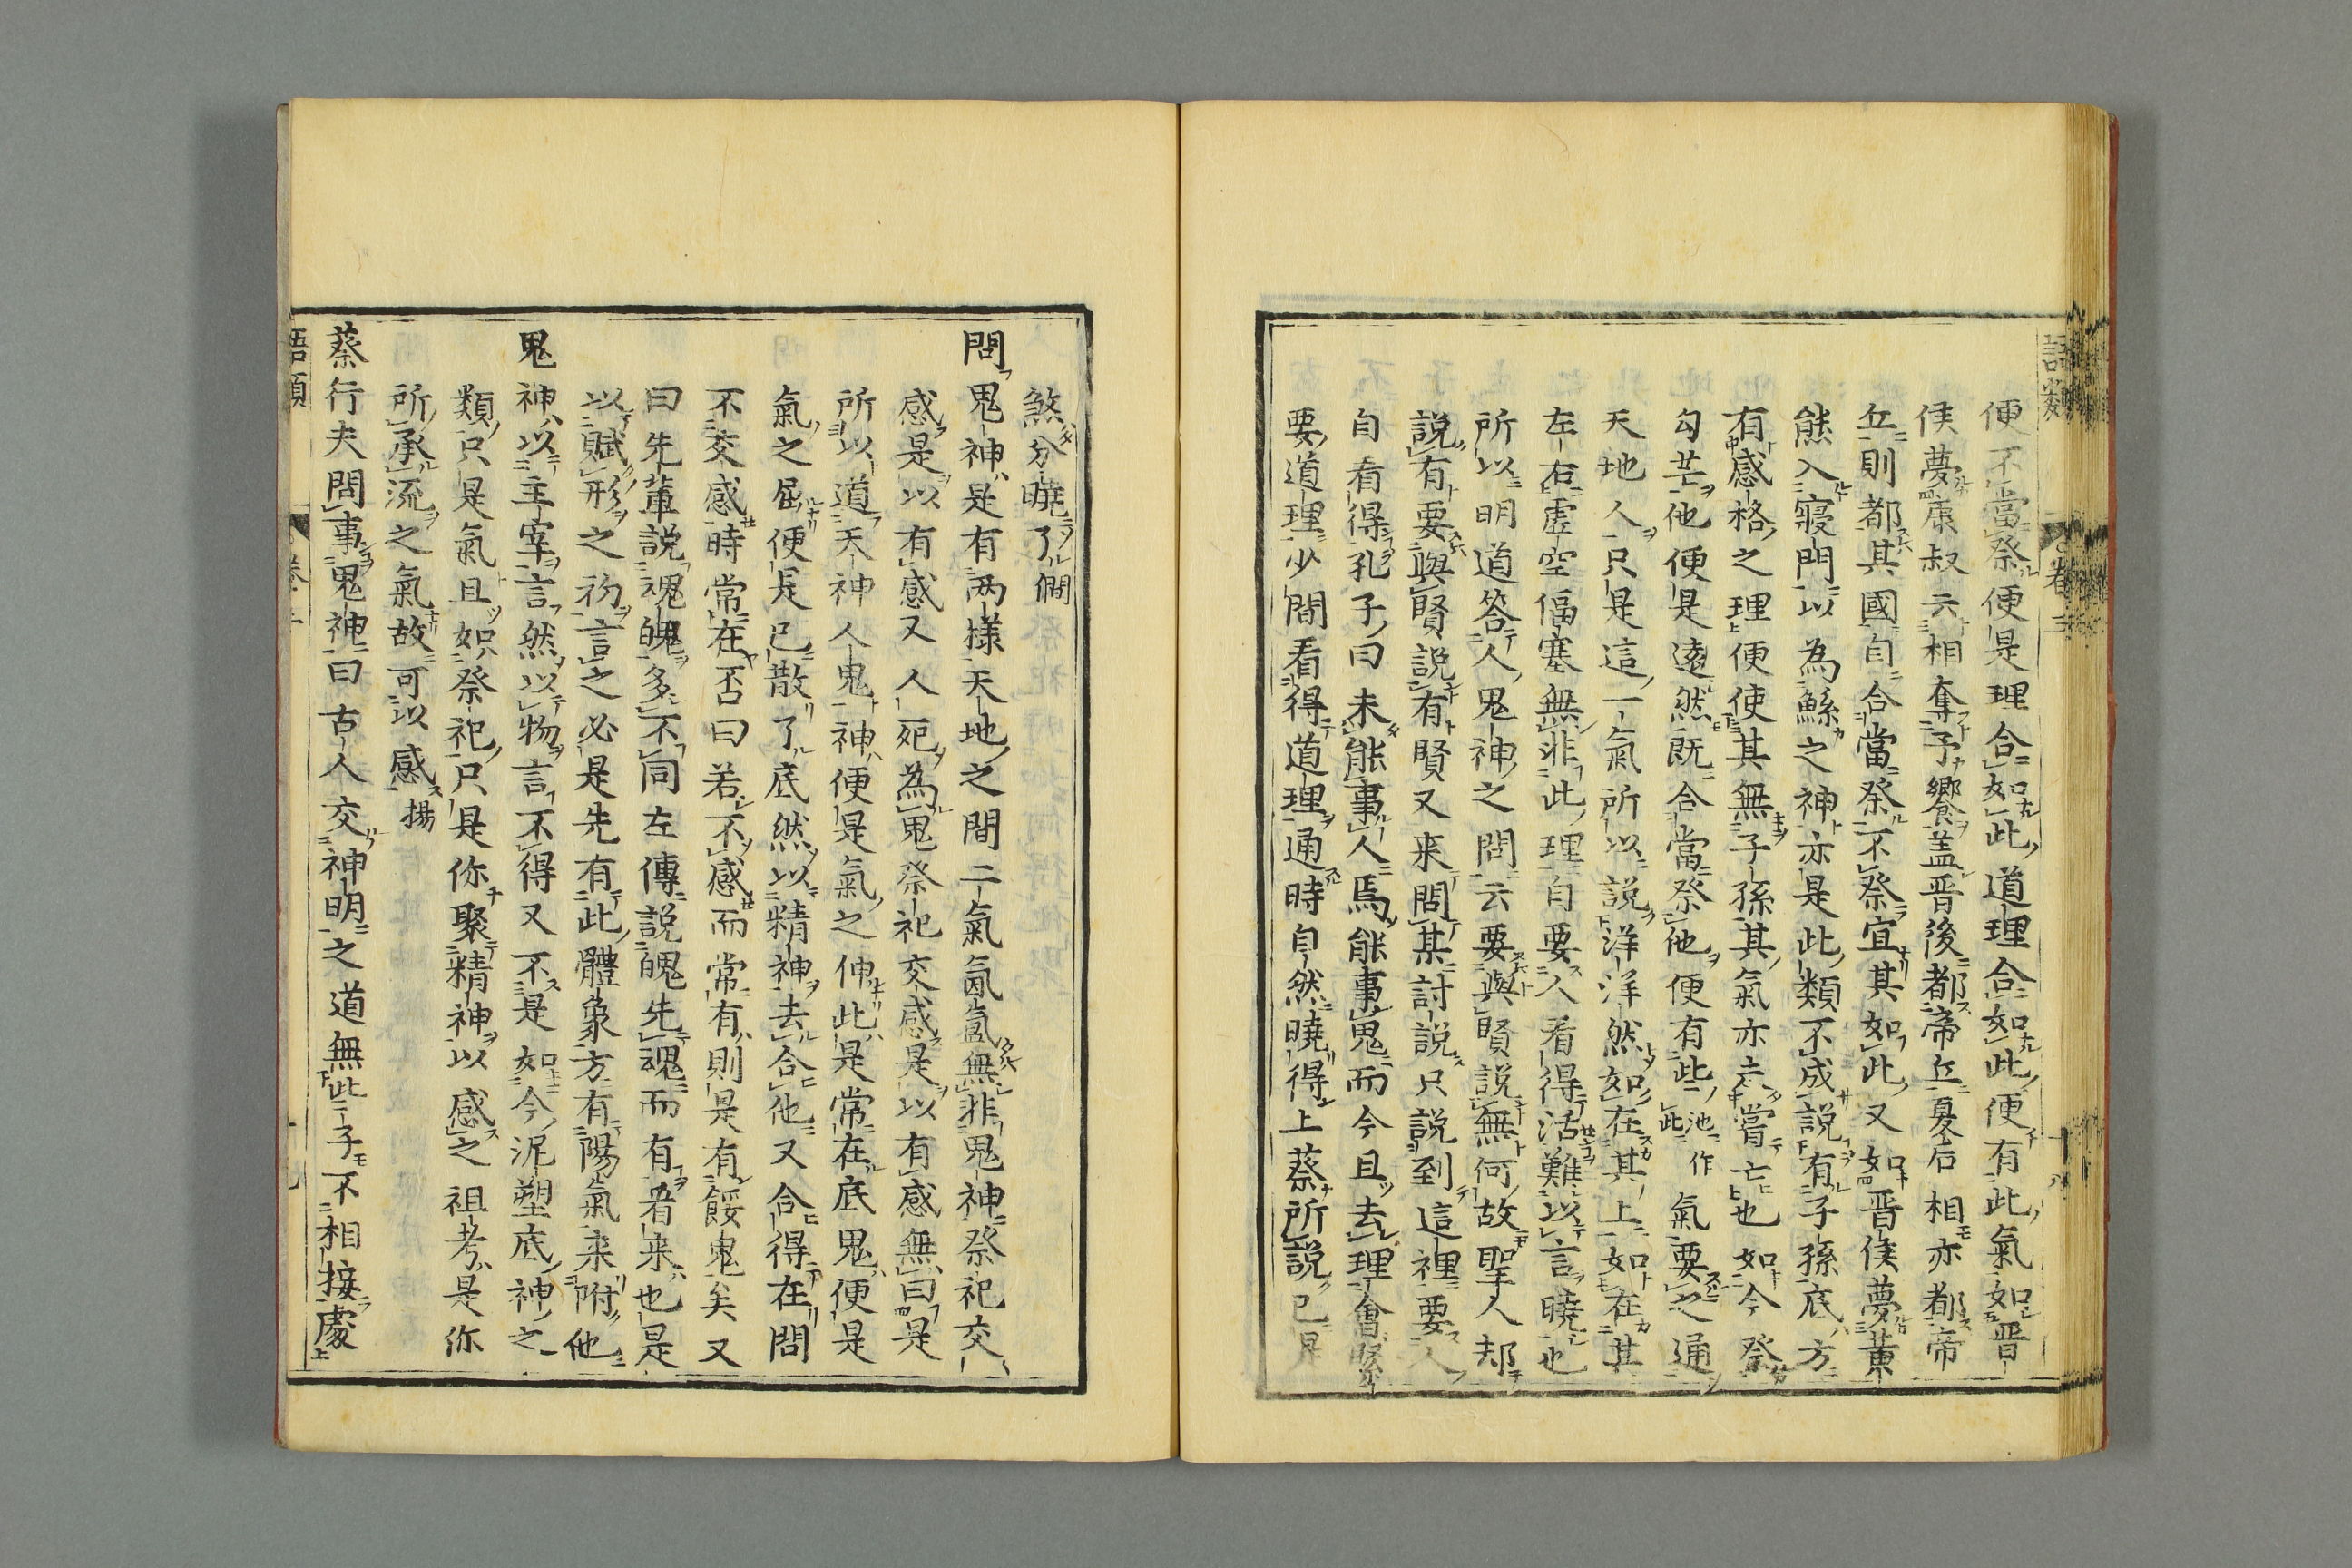 語類
卷三
便不當祭便是理合如此道理合如此便有此氣如晋
侯夢康叔云相奪予饗盖晋後都帝丘夏后相亦都帝
丘則都其國自合當祭不祭宜其如此又如晋侯夢黄
熊入寢門以為鯀之神亦是此類不成說有子孫底方
有感格之理便使其無子孫其氣亦未嘗亡也如今祭
勾芒他便是遠然既合當祭他便有些池作此氣要之通
天地人只是這一氣所以說洋洋然如在其上如在其
左右虛空偪塞無非此理自要人看得活難以言曉也
所以明道答人鬼神之問云要與賢說無何故聖人却
說有要與賢說有賢又来問某討說只說到這裡要人
自看得孔子曰未能事人焉能事鬼而今且去理會緊
要道理少間看得道理通時自然曉得上蔡所說已是
煞分曉了僩
問鬼神是有两様天地之間二氣氤氳無非鬼神祭祀交
感是以有感又人死為鬼祭祀交感是以有感無曰是
所以道天神人鬼神便是氣之伸此是常在底鬼便是
氣之屈便是已散了底然以精神去合他又合得在問
不交感時常在否曰若不感而常有則是有餒鬼矣又
曰先輩説魂魄多不同左傳説魄先魂而有看来也是
以賦形之初言之必是先有此體象方有陽氣来附他
鬼神以主宰言然以物言不得又不是如今泥塑底神之
類只是氣且如祭祀只是你聚精神以感之祖考是你
所承流之氣故可以感揚
蔡行夫問事鬼神曰古人交神明之道無些子不相接處
語類
卷三